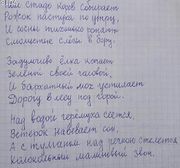 Уж стадо коров собирает
Рожок пастуха по утру,
И сосны тихонько роняют
Смолистые слёзы в бору.
Задумчиво ёлка кивает
Зелёной своей головой,
И бархатный мох устилает
Дорогу в лесу под горой.
Над водой черёмуха гнётся,
Ветерок навевает сон,
А с туманом над речкою стелется
Колокольный малиновый звон.